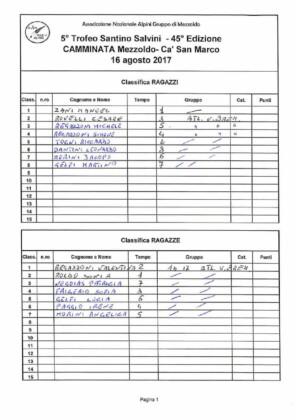 Associazione Nazionale Alpini Gruppo di Mezzoldo
5° Trofeo Santino Salvini - 45° Edizione
CAMMINATA Mezzoldo- Ca' San Marco
16 agosto 2017
Classifica RAGAZZI
Class. n.ro Cognome e Nome Tempo Gruppo Cat. Punti
1 ZANI MANUEL 1
2 ROVELLI CESARE 3 ATL. V. BREM.
3 REGAZZONI MICHELE 5 " " "
4 REGAZZONI SIMONE 4 " " "
5 RICCARDO 3
6 DANIONI LEONARDO 3
7 MORINI JACOPO 6
8 GELFI MARTINO 7
9
10
11
12
13
14
15
Classifica RAGAZZE
Class. n.ro Cognome e Nome Tempo Gruppo Cat. Punti
1 REGAZZONI VALENTINA 2 ATL V. BREM
2 SONIA 2
3 1
4 SOFIA 3
5 GELFI 6
6 IRENE 4
7 MORINI ANGELICA 5
8
9
10
11
12
13
14
15
Pagina 1